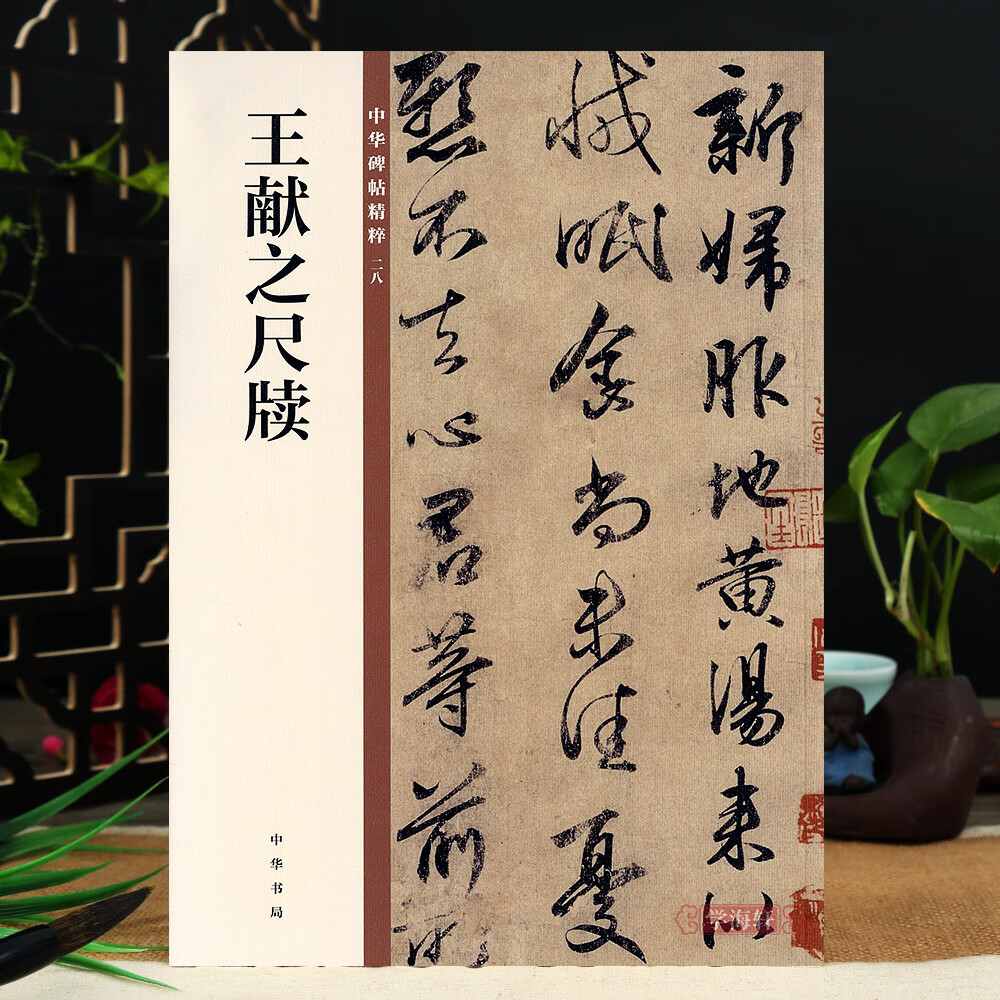 王献之尺牍
中华书局
中华碑帖精粹 二八
新婦服地黄湯来似
減眠食尚未佳憂
懸不去心君等前所
学海轩